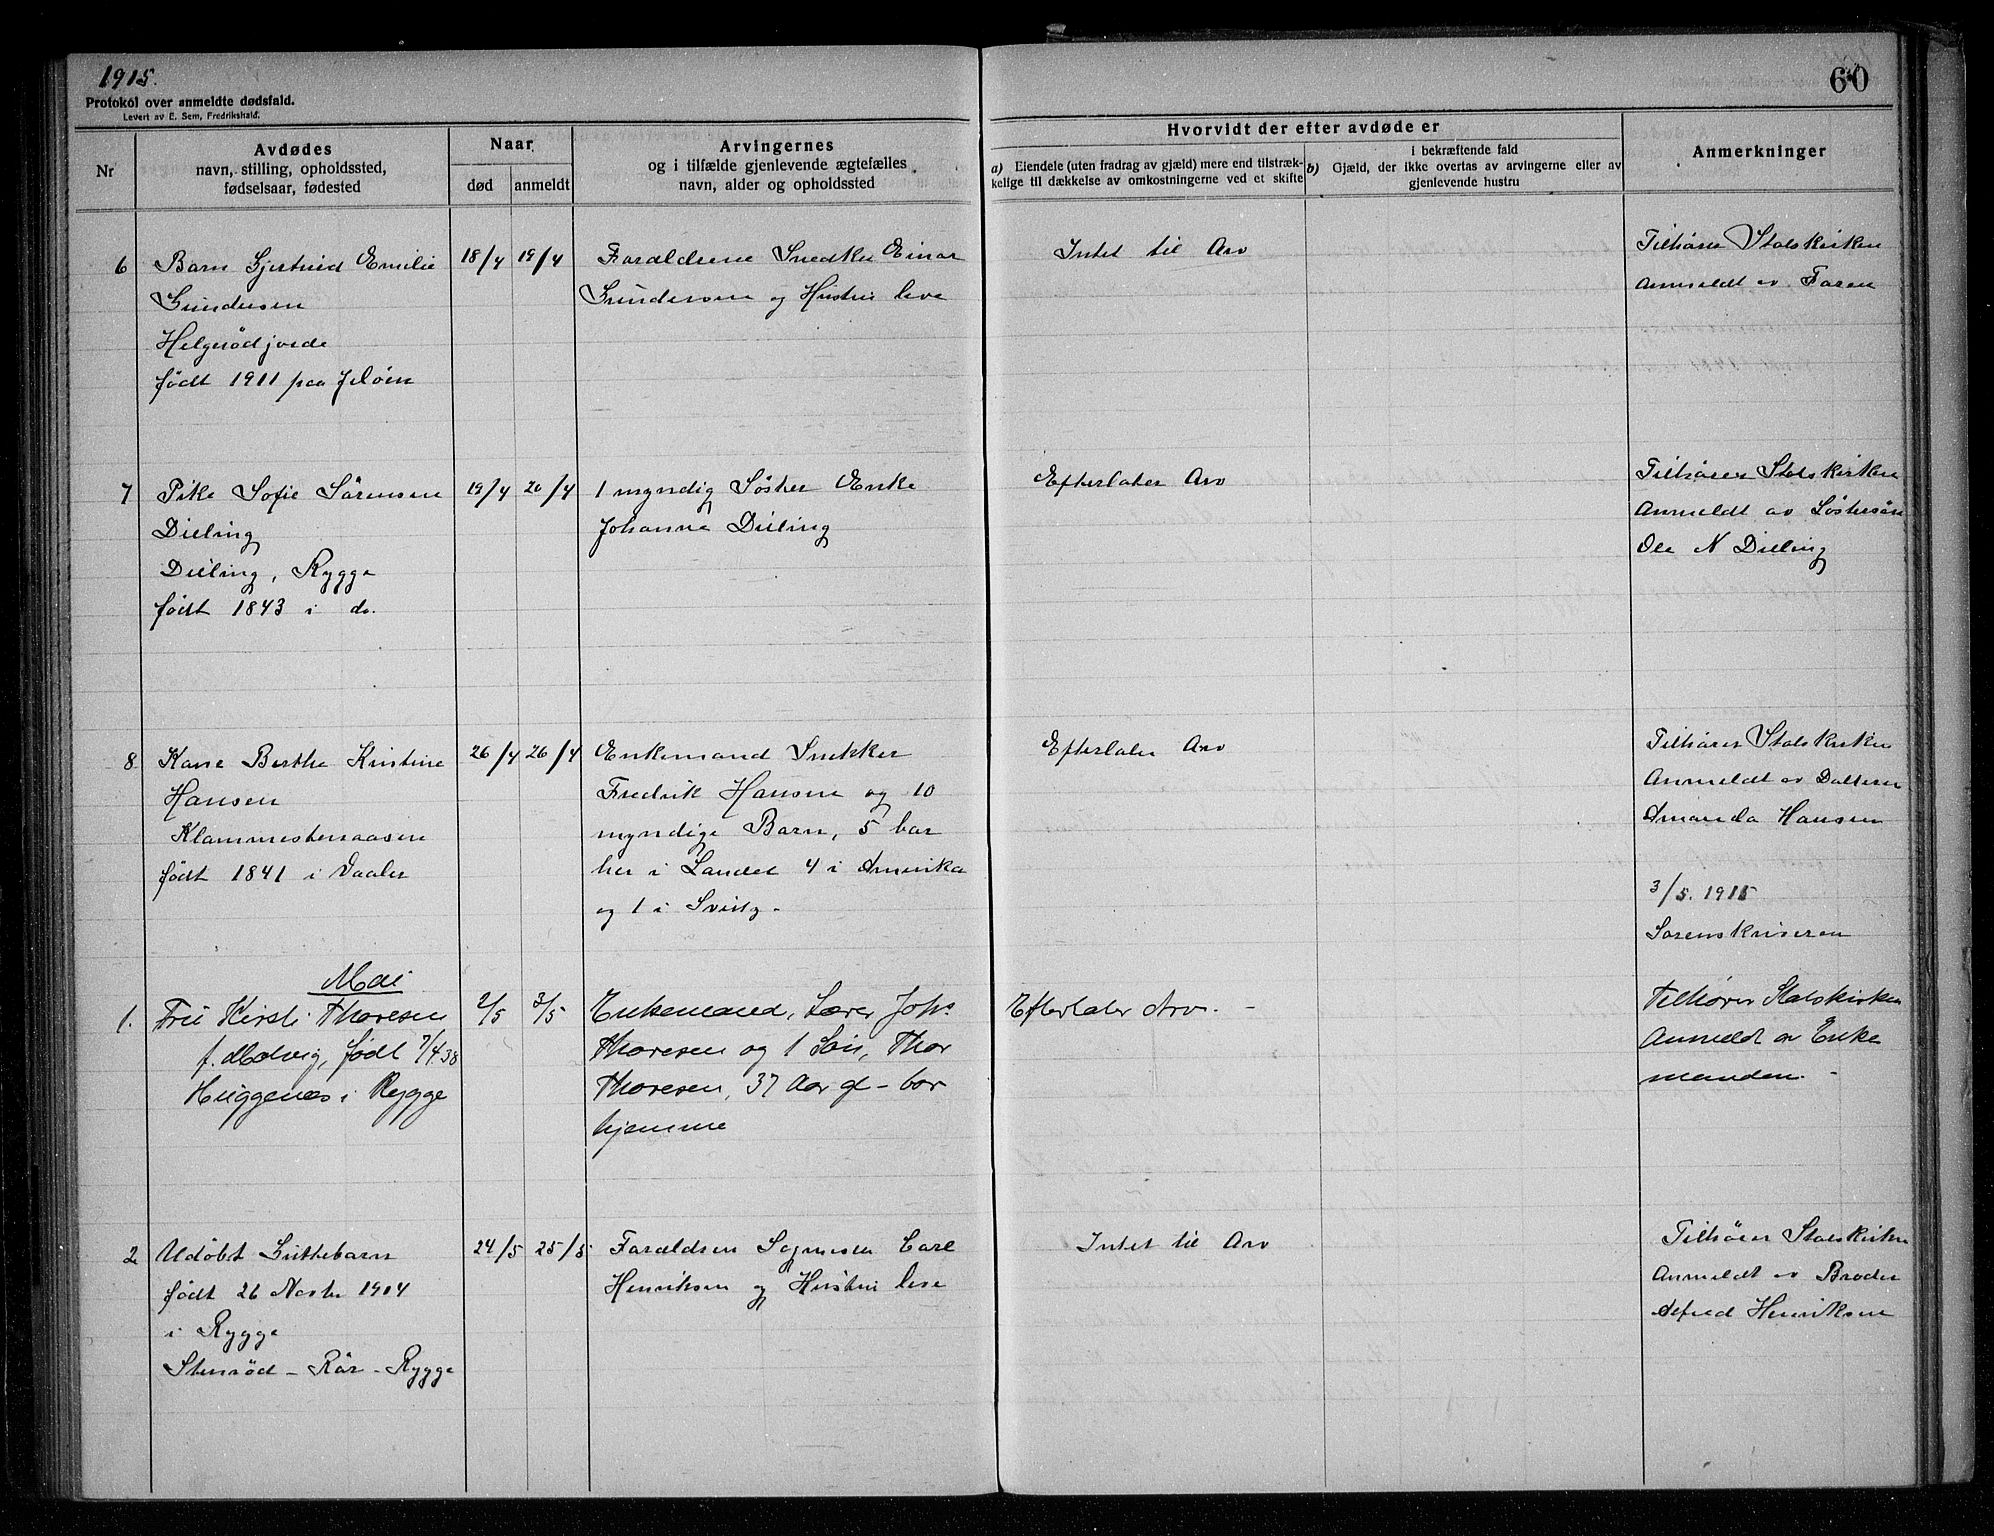 1915.
60
Protokol over anmeldte dødsfald.
Levert av E. Sem, Fredrikshald.
Nr
Avdødes
navn, stilling, opholdssted,
fødselsaar, fødested
Naar
død
anmeldt
Arvingernes
og i tilfælde gjenlevende ægtefælles
navn, alder og opholdssted
Hvorvidt der efter avdøde er
a) Eiendele (uten fradrag av gjæld) mere end tilstræk-
kelige til dækkelse av omkostningerne ved et skifte
i bekræftende fald
b) Gjæld, der ikke overtas av arvingerne eller av
gjenlevende hustru
Anmerkninger
6
Barn Gjertrud Emilie
Gundersen
Helgerødjorde
født 1911 paa Jeløen
18/4
19/4
Forældrene Snedker Einar
Gundersen og Hustru leve
Intet til Arv
Tilhører Statskirken
Anmeldt av Faren
7
Pike Sofie Sørensen
Dilling
Dilling, Rygge
født 1843 i do.
19/4
20/4
1 myndig Søster Enke
Johanne Dilling
Efterlater Arv
Tilhører Statskirken
Anmeldt av Søstersøn
Ole N Dilling
8
Kone Berthe Kristine
Hansen
Klommestenaasen
født 1841 i Vaaler
26/4
26/4
Enkemand Snekker
Fredrik Hansen og 10
myndige Barn, 5 bor
her i Landet 4 i Amerika
og 1 i
Efterlater Arv
Tilhører Statskirken
Anmeldt av Datteren
Amanda Hansen
3/5. 1915
Sorenskriveren
Mai
1.
Fru Kirsti Thoresen
f. Molvig, født 7/4 38
Huggenes i Rygge
2/5
3/5
Enkemand, Lærer Johs
Thoresen og 1 Søn, Thor
Thoresen, 37 Aar gl - bor
hjemme
Efterlater Arv. -
Tilhører Statskirken
Anmeldt av Enke
manden. -
2
Udøbt Guttebarn
født 26 Novbr 1914
i Rygge
Stenrød - Rør - Rygge
24/5
25/5
Forældren Sagmester Carl
Henriksen og Hustru leve
Intet til Arv
Tilhører Statskirken
Anmeldt av Broder
Alfred Henriksen